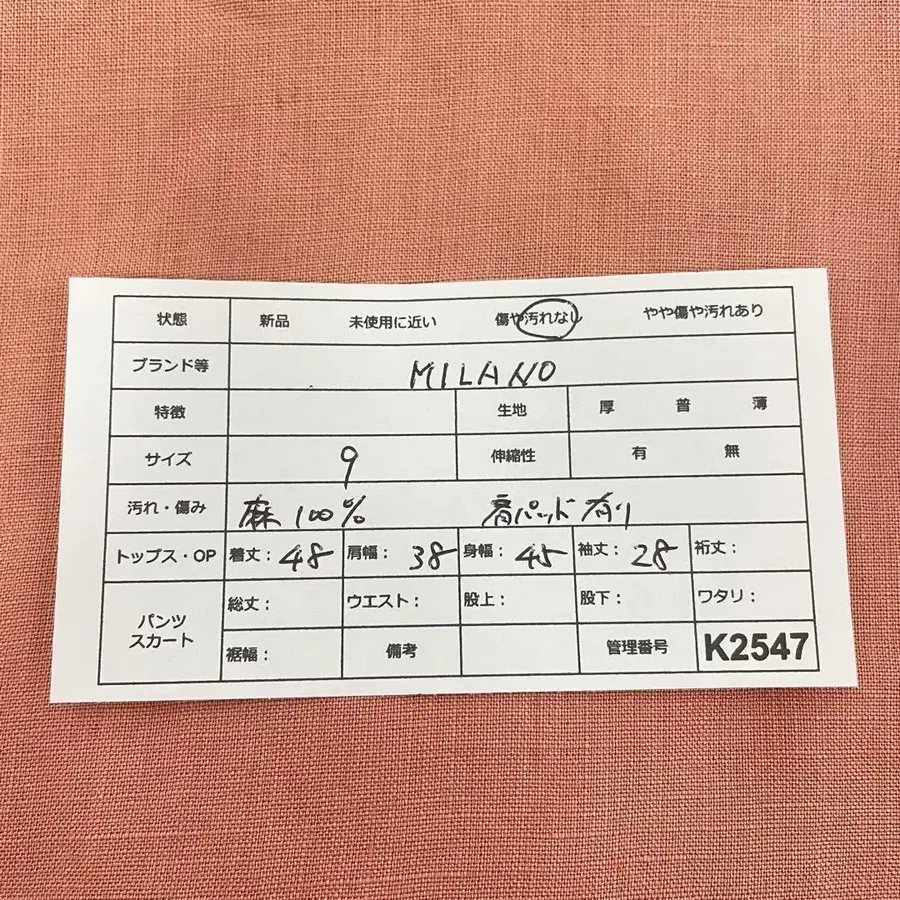 状態 新品 未使用に近い 傷や汚れなし やや傷や汚れあり
ブランド等 MILANO
特徴 生地 厚 普 薄
サイズ 9 伸縮性 有 無
汚れ・傷み 麻100% 肩パッド有り
トップス・OP 着丈：48 肩幅：38 身幅：45 袖丈：28 裄丈：
パンツ スカート 総丈： ウエスト： 股上： 股下： ワタリ：
裾幅： 備考 管理番号 K2547